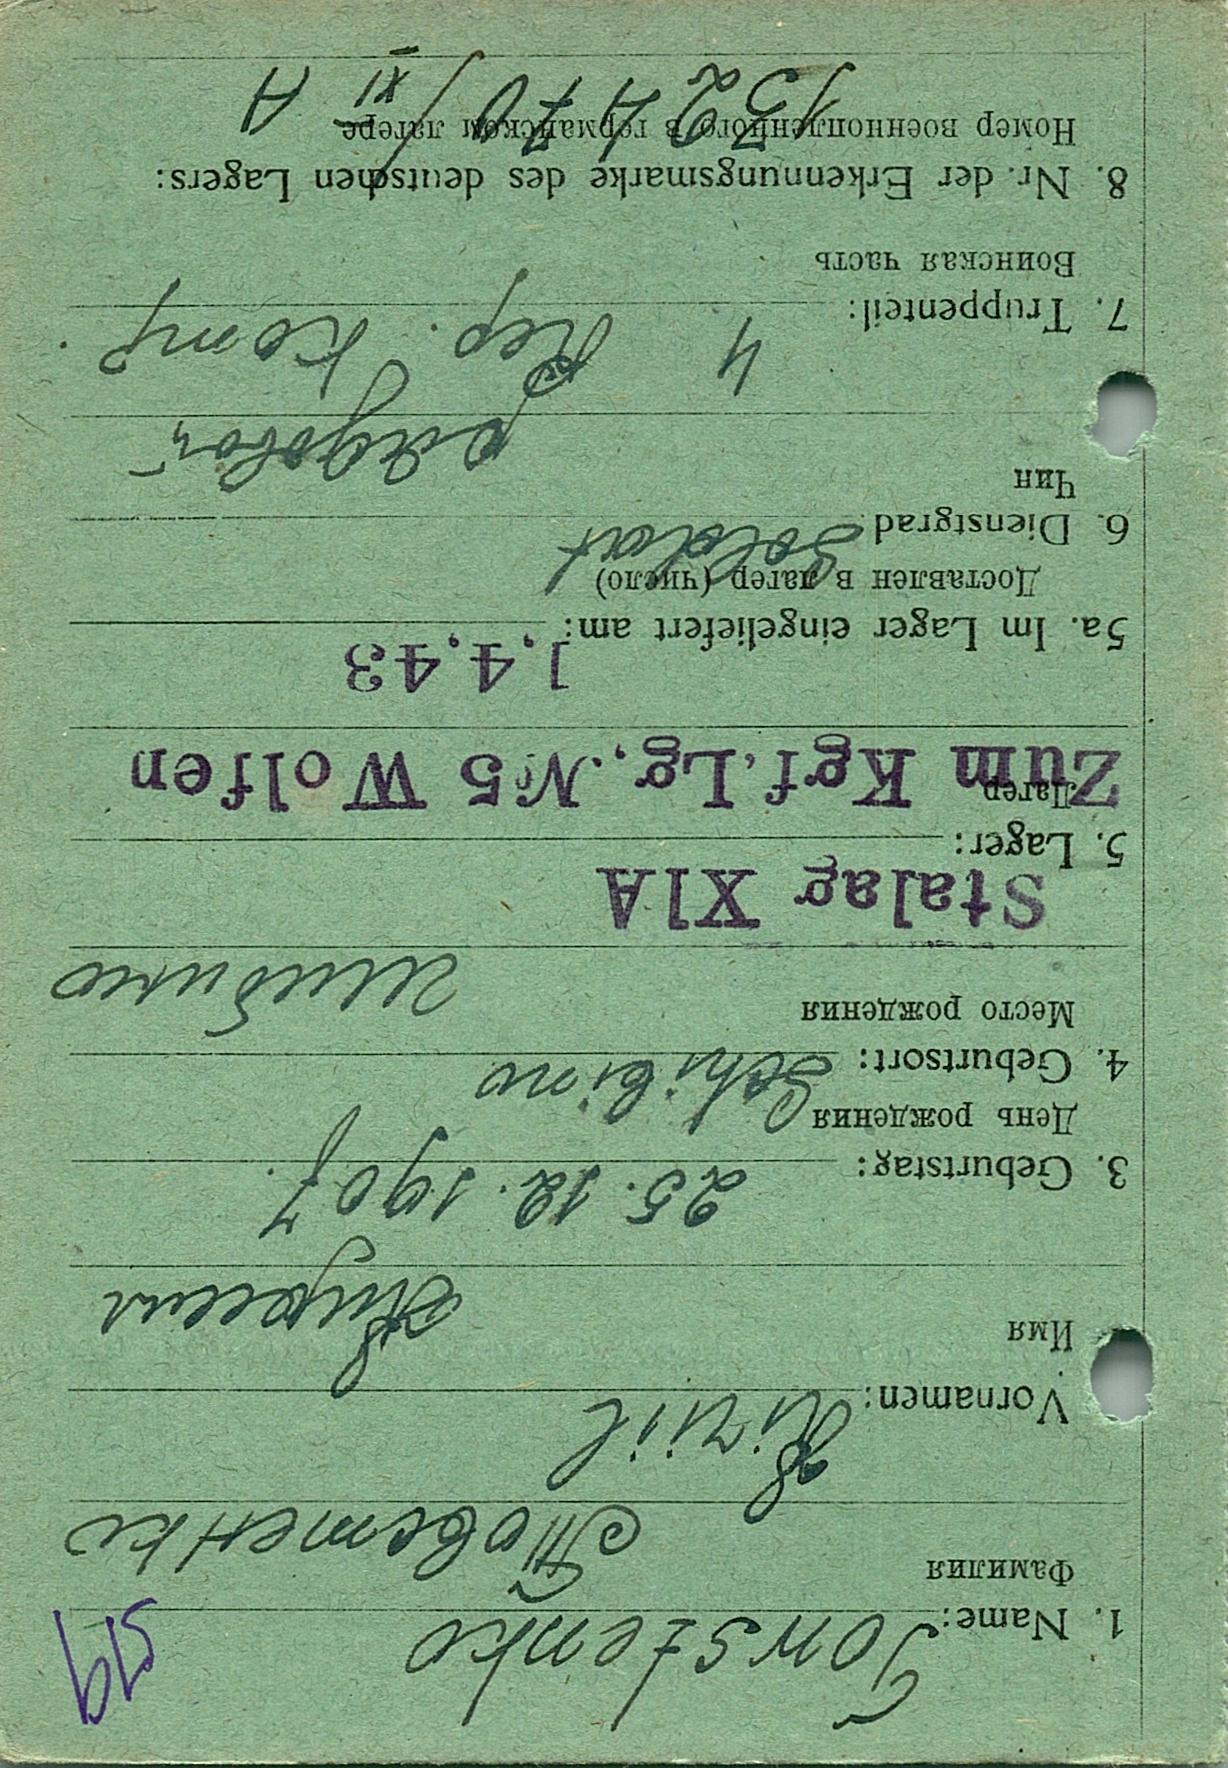 519
1. Name: Towstenko
Фамилия Товстенко
Vornamen: Kiril
Имя Кирилл
3. Geburtstag: 25.12.1907.
День рождения
4. Geburtsort: Schibino
Место рождения Шибино
Stalag XIA
5. Lager:
Лагерь
Zum Kgf.Lg.№5 Wolfen
1.4.43
5a. Im Lager eingeliefert am:
Доставлен в лагер (число)
6. Dienstgrad Soldat
Чин рядовой
7. Truppenteil: 4 Rep. Komp.
Воинская часть
8. Nr. der Erkennungsmarke des deutschen Lagers:
Номер военнопленного в германском лагере
132470/ XI A